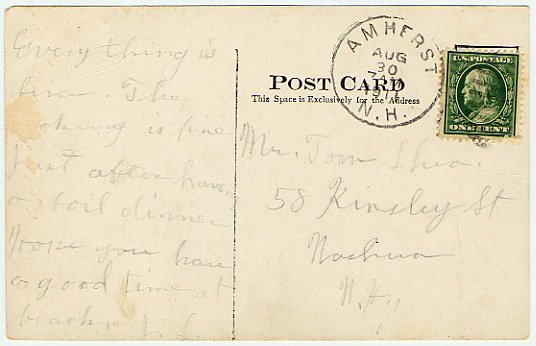 Everything is
fine The
is fine
Just after having
a boil dinner
Hope you have
a good time at
beach.
POST CARD
This Space is Exclusively for the Address
AMHERST
AUG
30
7 AM
1911
N.H.
U.S. POSTAGE
ONE CENT
Mr. Tom Shea.
58 Kinsley St
Nashua
N.H.